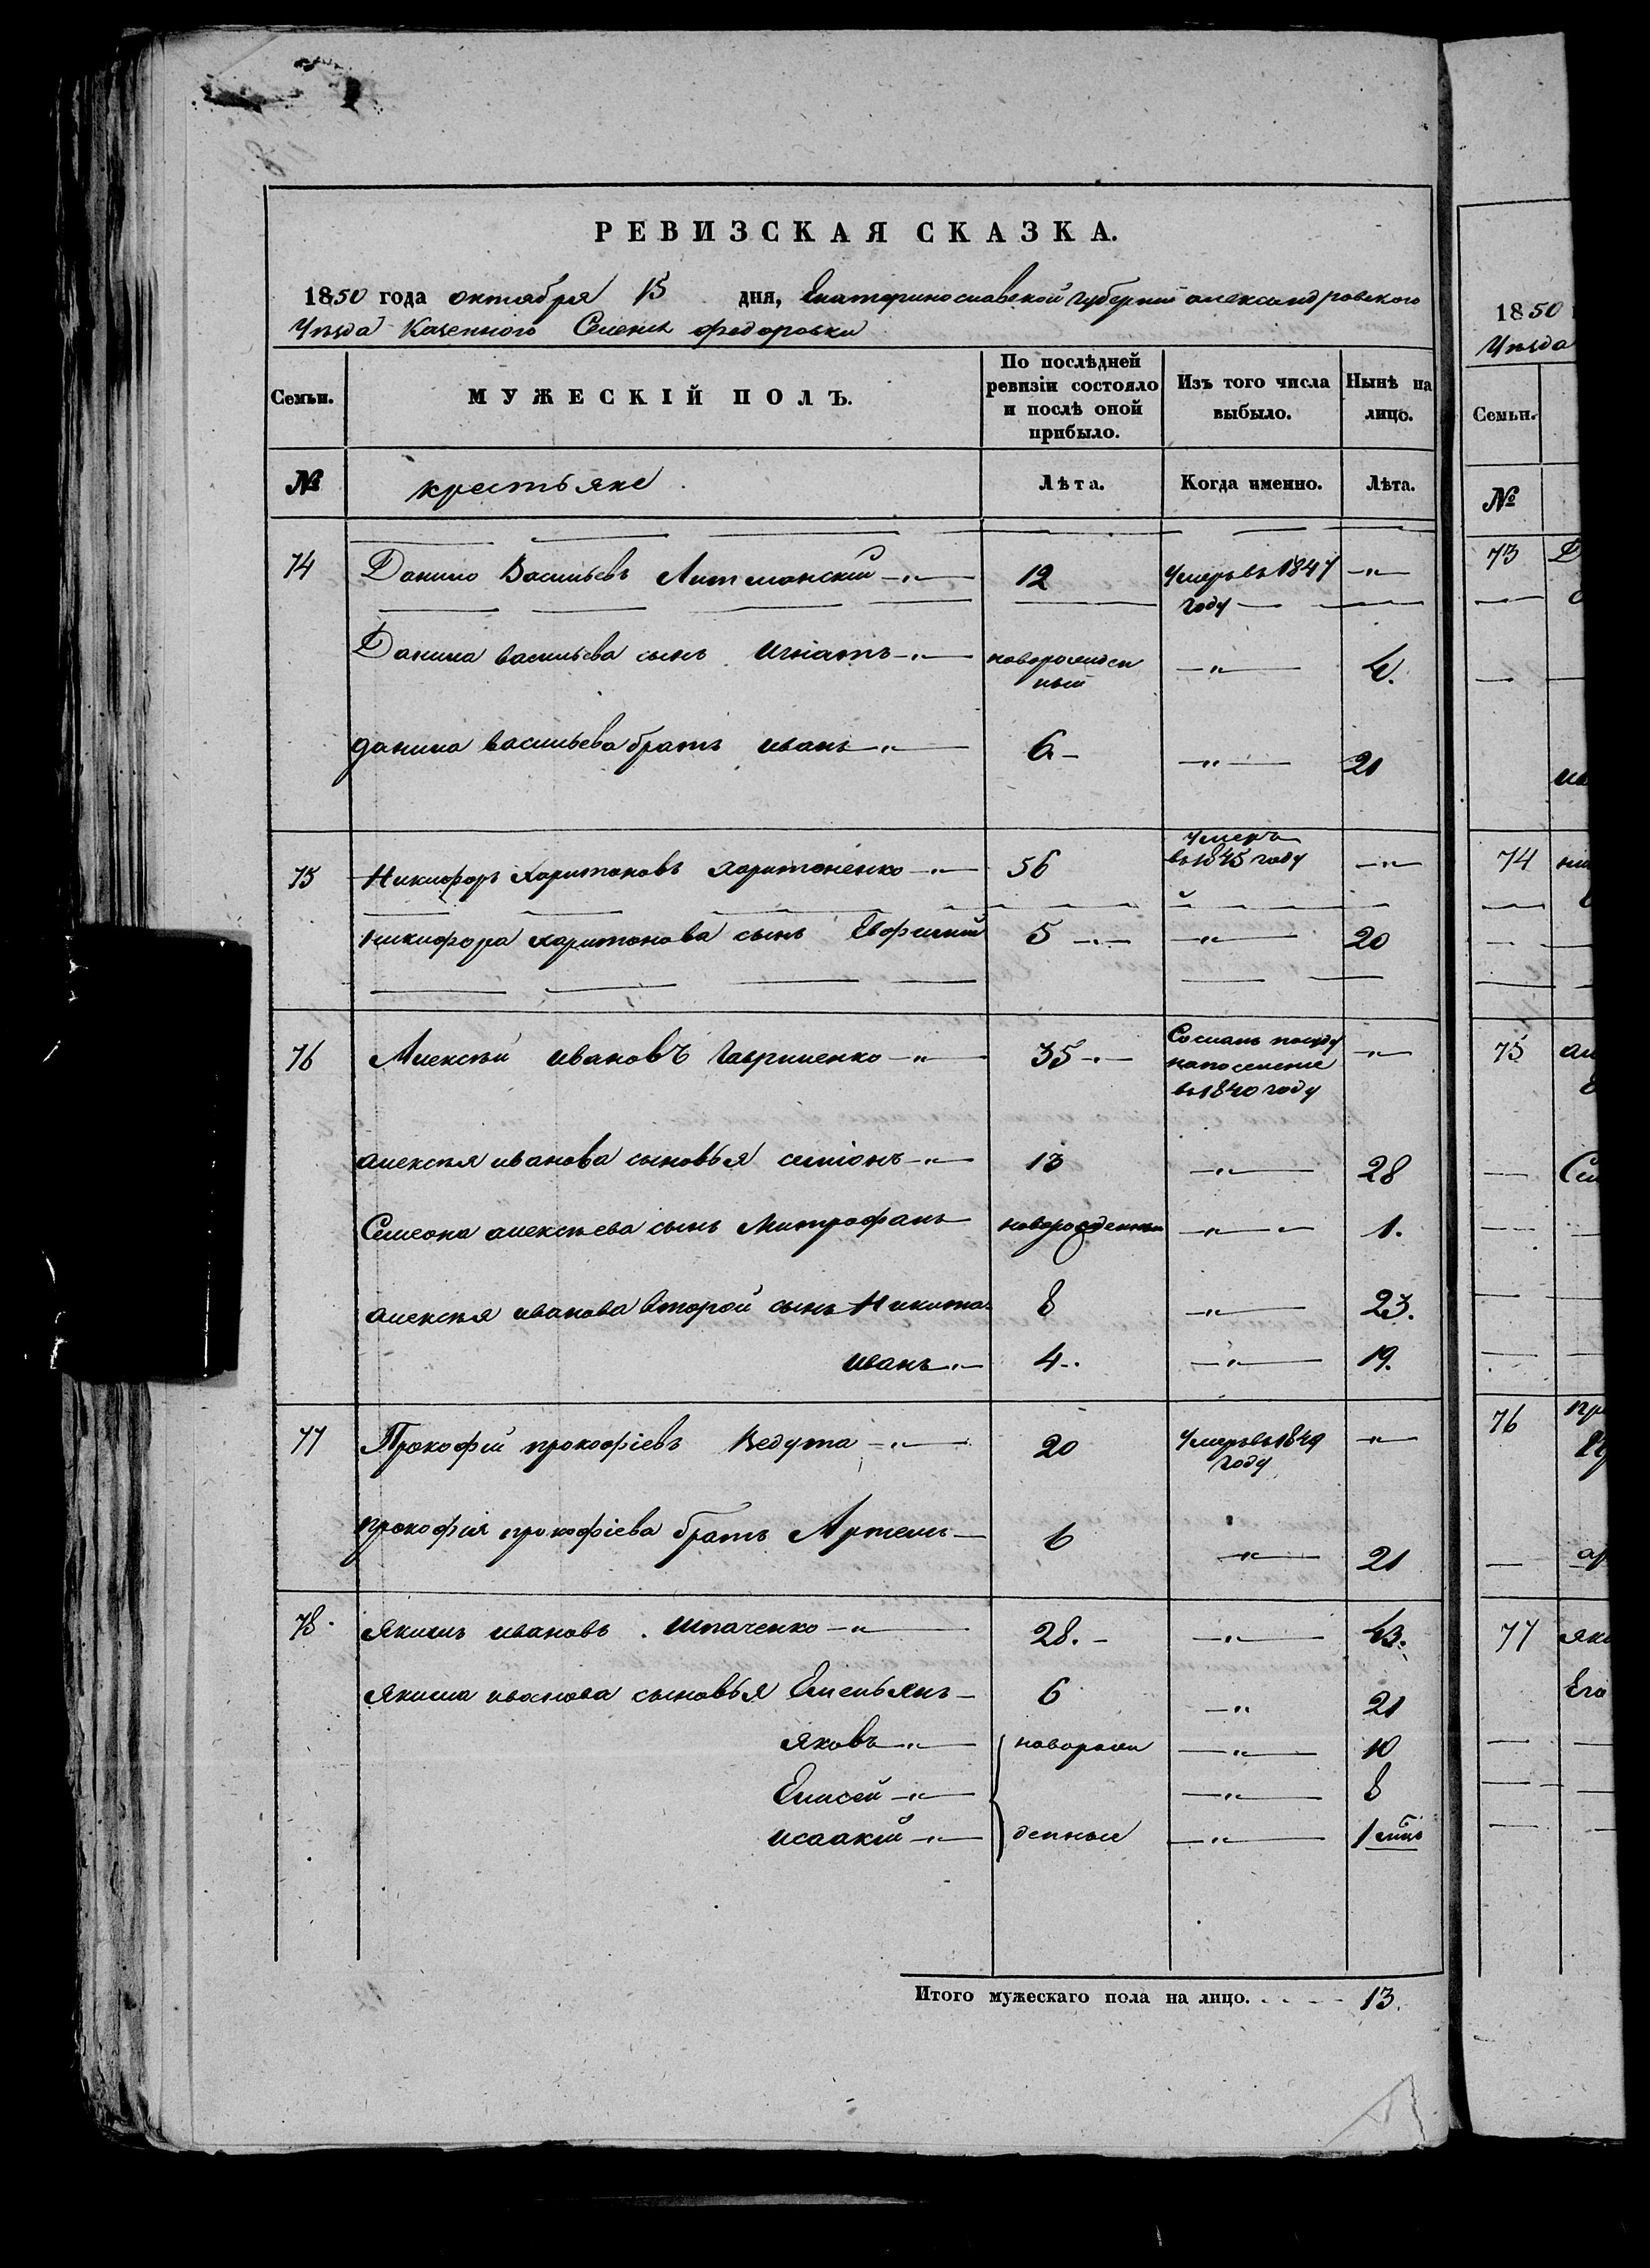 РЕВИЗСКАЯ СКАЗКА.
1850 года октября 15 дня, Екатеринославской губернiи александровского
Уѣзда Казенного Селенiя федоровки
Семьи. МУЖЕСКІЙ ПОЛЪ. По послѣдней ревизіи состояло и послѣ оной прибыло. Изъ того числа выбыло. Нынѣ на лицо.
№ крестьяне. Лѣта. Когда именно. Лѣта.
74 Данило Васильевъ Литманскiй 12 Умеръ въ 1847 году
Данила васильева сынъ игнатъ новорожденный 4.
данила васильева братъ иванъ 6 21
75 Никифоръ Харитоновъ харитоненко 56 Умеръ въ 1845 году
никифора харитонова сынъ Евфимiй 5 20
76 Алексѣй ивановъ Гавриленко 35 Сосланъ по суду на поселенiе въ 1840 году
алексѣя иванова сыновья симiонъ 13 28
Семеона алексѣева сынъ Митрофанъ новорожденный 1.
алексѣя иванова второй сынъ Никита 8 23.
иванъ 4 19.
77 Прокофiй прокофiевъ Ведута 20 Умеръ въ 1849 году
прокофiя прокофiева братъ Артемъ 6 21
78. якимъ ивановъ Шпаченко 28. 43.
якима иванова сыновья Емельянъ 6 21
яковъ новорож 10
Елисей 8
исаакiй денные 1
Итого мужескаго пола на лицо. 13.
1850
Уѣзда
Семьи.
№
73
74
75
76
77